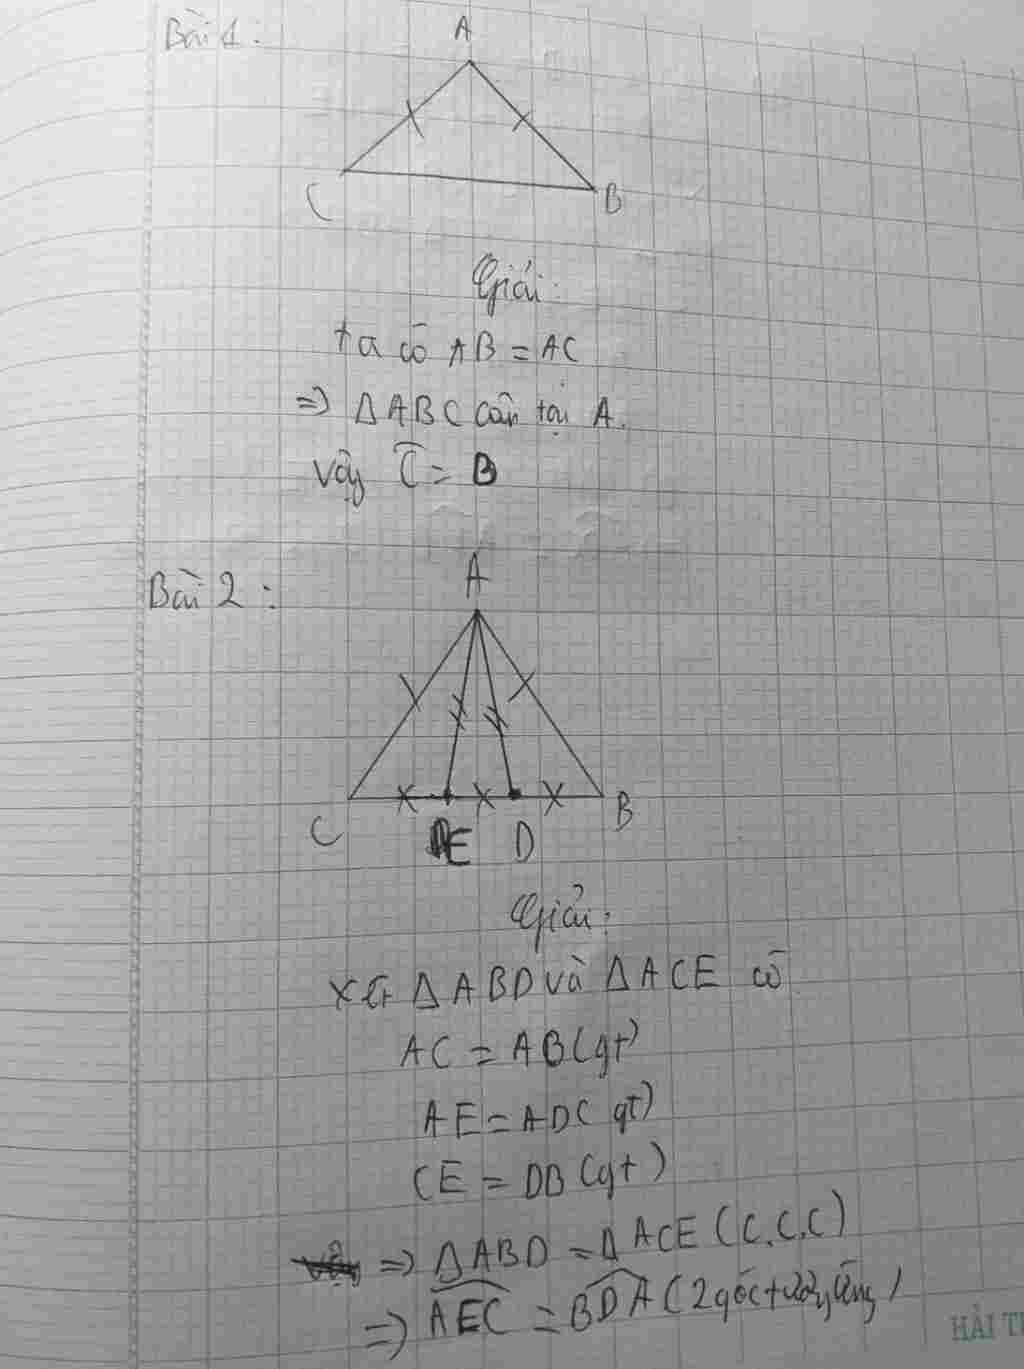 Bài 1:
A
C
B
Giải:
ta có AB = AC
=> ΔABC cân tại A.
Vậy Ĉ = B
Bài 2:
A
C
E D
B
Giải:
xét ΔABD và ΔACE có
AC = AB (gt)
AE = AD (gt)
CE = DB (gt)
=> ΔABD = ΔACE (C.C.C)
=> AEC = BDA (2 góc tương ứng)
HẢI T